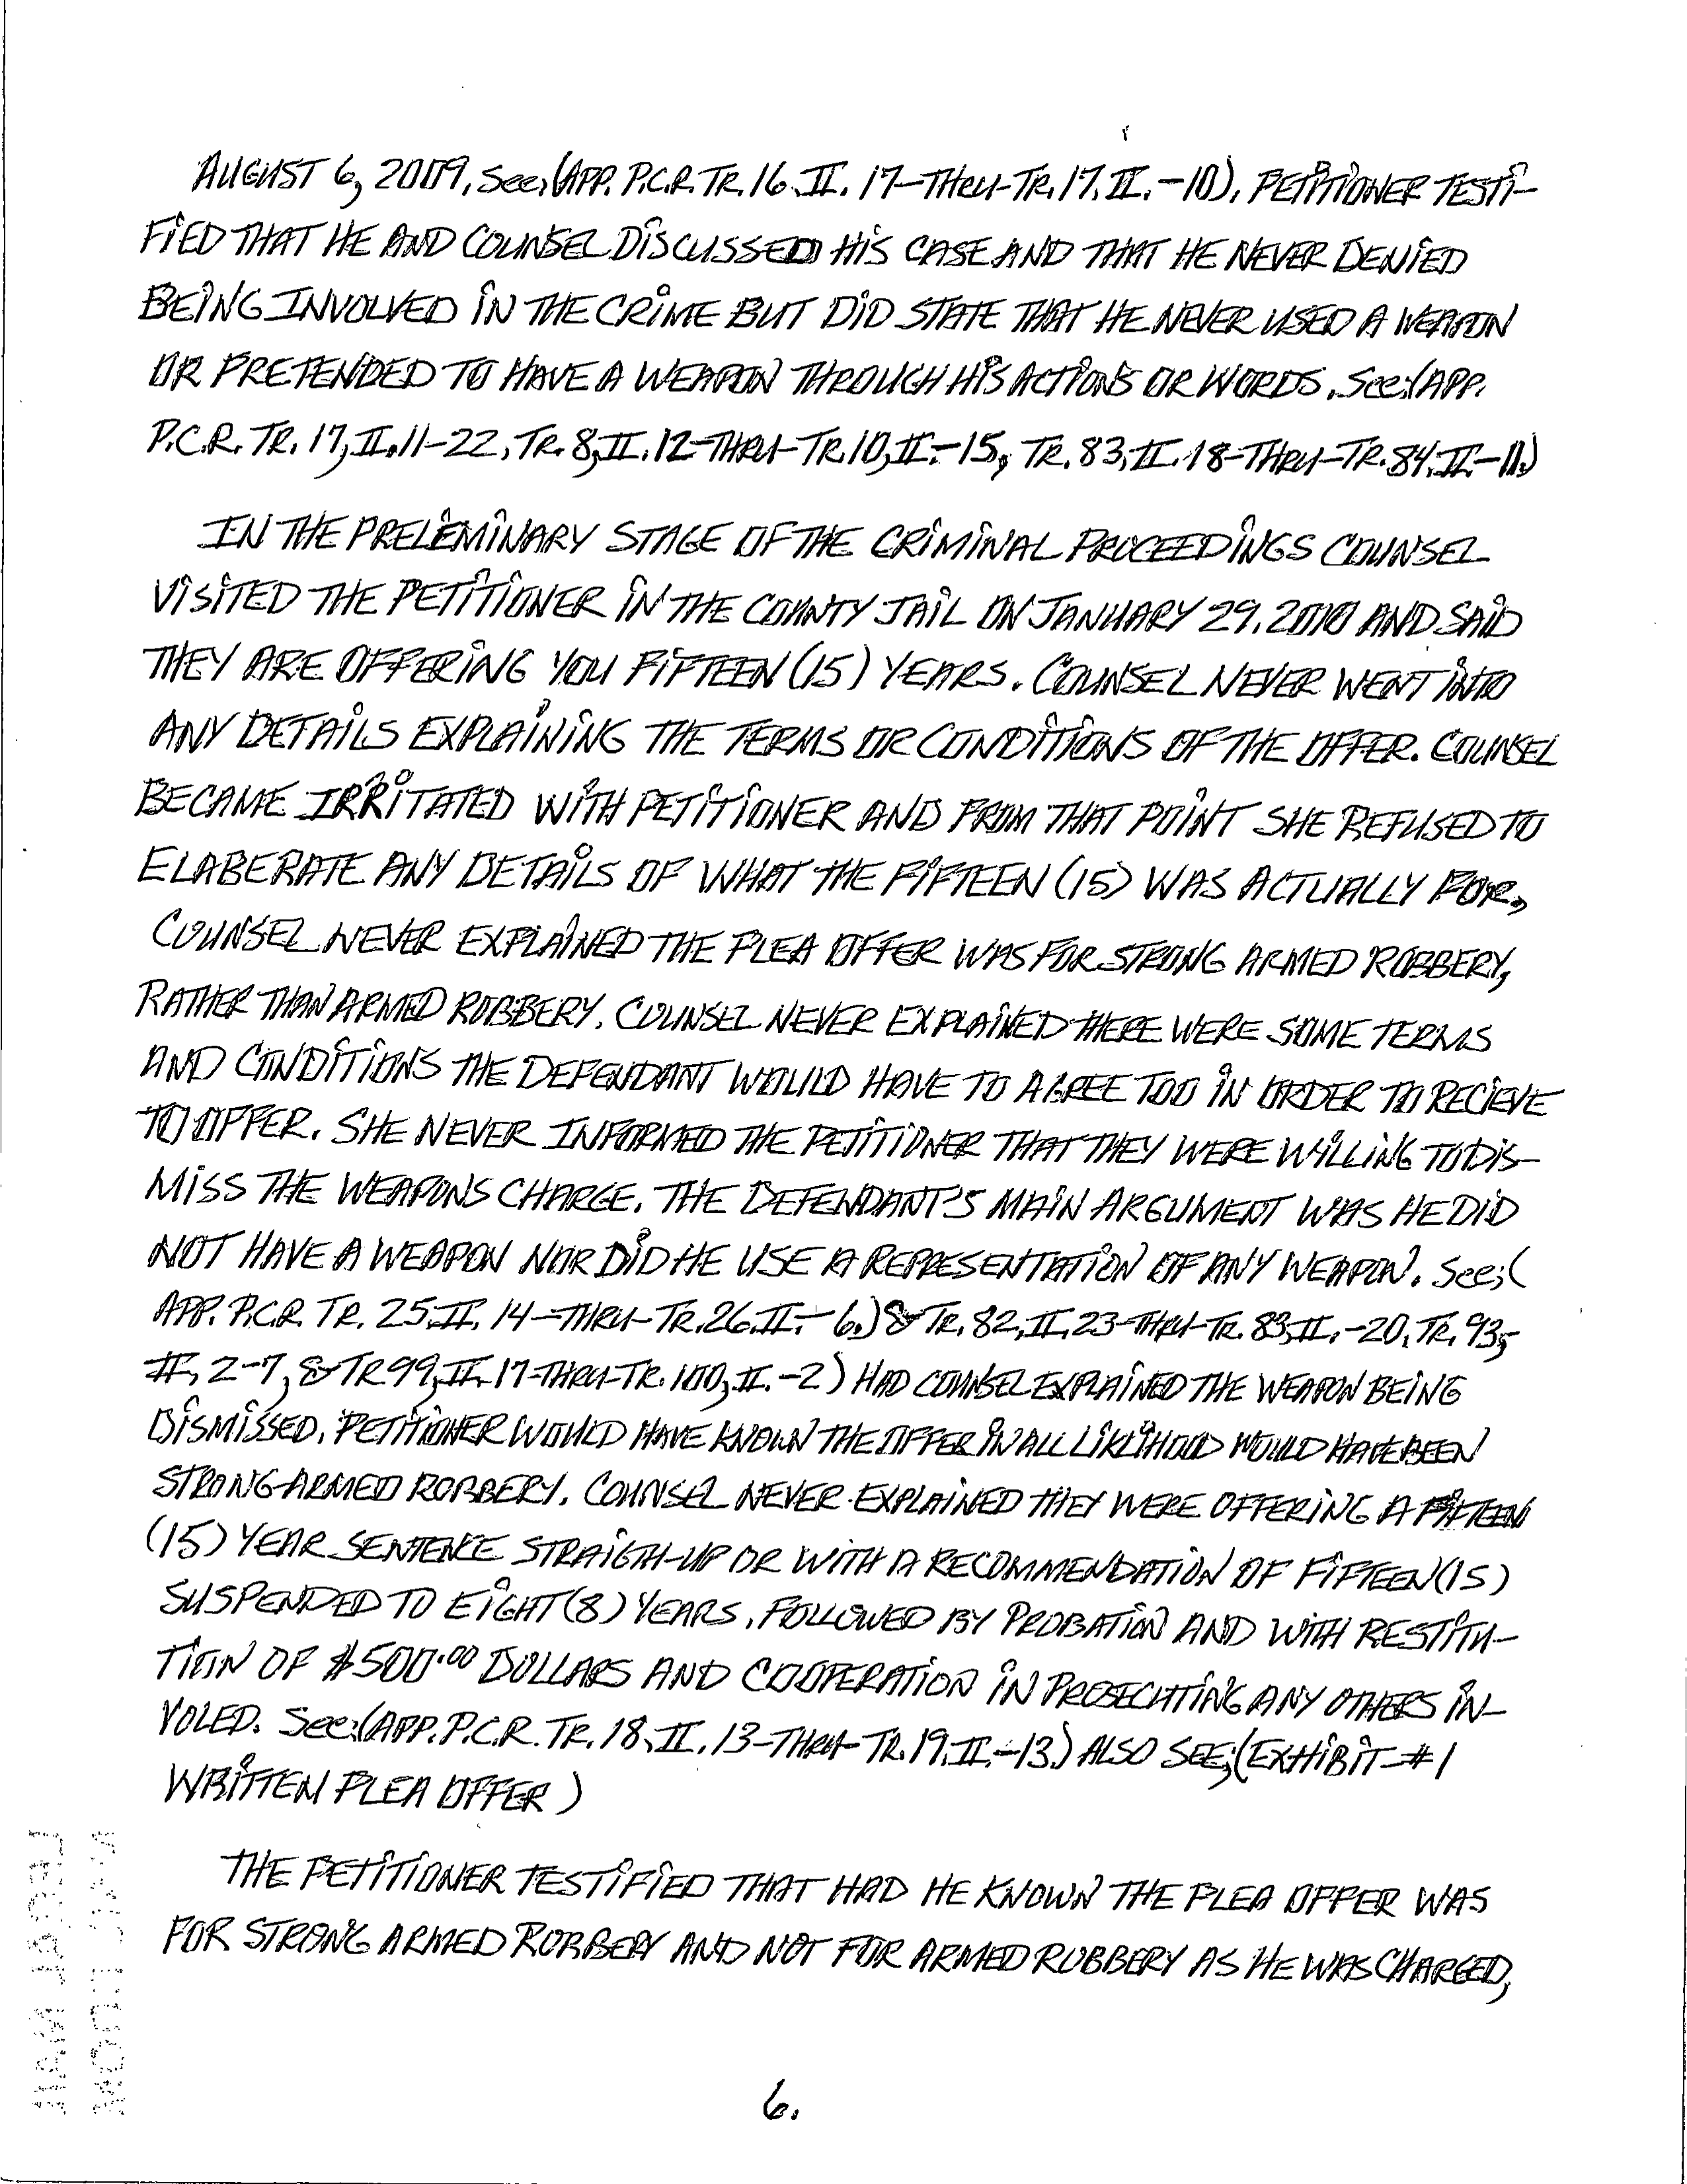 AUGUST 6, 2009, See;(APP. P.C.R. TR. 16, II. 17-THRU-TR. 17, II. -10), PETITIONER TESTI-
FIED THAT HE AND COUNSEL DISCUSSED HIS CASE AND THAT HE NEVER DENIED
BEING INVOLVED IN THE CRIME BUT DID STATE THAT HE NEVER USED A WEAPON
OR PRETENDED TO HAVE A WEAPON THROUGH HIS ACTIONS OR WORDS. See;(APP.
P.C.R. TR. 17, II. 11-22, TR. 8, II. 12-THRU-TR. 10, II. -15, TR. 83, II. 18-THRU-TR. 84, II. -11.)
IN THE PRELEMINARY STAGE OF THE CRIMINAL PROCEEDINGS COUNSEL
VISITED THE PETITIONER IN THE COUNTY JAIL ON JANUARY 29, 2010 AND SAID
THEY ARE OFFERING YOU FIFTEEN (15) YEARS. COUNSEL NEVER WENT INTO
ANY DETAILS EXPLAINING THE TERMS OR CONDITIONS OF THE OFFER. COUNSEL
BECAME IRRITATED WITH PETITIONER AND FROM THAT POINT SHE REFUSED TO
ELABERATE ANY DETAILS OF WHAT THE FIFTEEN (15) WAS ACTUALLY FOR,
COUNSEL NEVER EXPLAINED THE PLEA OFFER WAS FOR STRONG ARMED ROBBERY,
RATHER THAN ARMED ROBBERY. COUNSEL NEVER EXPLAINED THERE WERE SOME TERMS
AND CONDITIONS THE DEFENDANT WOULD HAVE TO AGREE TOO IN ORDER TO RECIEVE
TO OFFER. SHE NEVER INFORMED THE PETITIONER THAT THEY WERE WILLING TO DIS-
MISS THE WEAPONS CHARGE. THE DEFENDANT'S MAIN ARGUMENT WAS HE DID
NOT HAVE A WEAPON NOR DID HE USE A REPRESENTATION OF ANY WEAPON. See;(
APP. P.C.R. TR. 25, II. 14-THRU-TR. 26, II. - 6.) & TR. 82, II, 23-THRU-TR. 83, II. -20, TR. 93,
II, 2-7, & TR 99, II, 17-THRU-TR. 100, II. -2) HAD COUNSEL EXPLAINED THE WEAPON BEING
DISMISSED, PETITIONER WOULD HAVE KNOWN THE OFFER IN ALL LIKLIHOOD WOULD HAVE BEEN
STRONG-ARMED ROBBERY. COUNSEL NEVER EXPLAINED THEY WERE OFFERING A FIFTEEN
(15) YEAR SENTENCE STRAIGTH-UP OR WITH A RECOMMENDATION OF FIFTEEN (15)
SUSPENDED TO EIGHT (8) YEARS, FOLLOWED BY PROBATION AND WITH RESTITU-
TION OF $500.00 DOLLARS AND COOPERATION IN PROSECUTING ANY OTHERS IN-
VOLED. See;(APP. P.C.R. TR. 18, II. 13-THRU-TR. 19, II. -13.) ALSO SEE;(EXHIBIT-#1
WRITTEN PLEA OFFER)
THE PETITIONER TESTIFIED THAT HAD HE KNOWN THE PLEA OFFER WAS
FOR STRONG ARMED ROBBERY AND NOT FOR ARMED ROBBERY AS HE WAS CHARGED,
6.